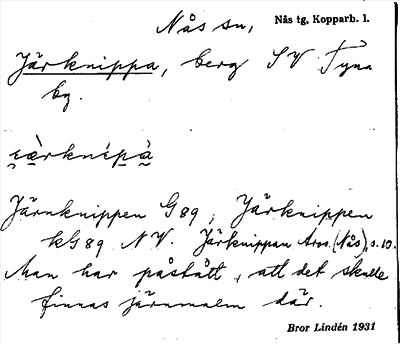 Nås sn, Nås tg, Kopparb. l.
Järknippa, berg SV Tyna
by.
Järnknippen G89, Järknippen
kG89 NV. Järknippan Aros. (Nås), s. 10.
Man har påstått, att det skulle
finnas järnmalm där.
Bror Lindén 1931